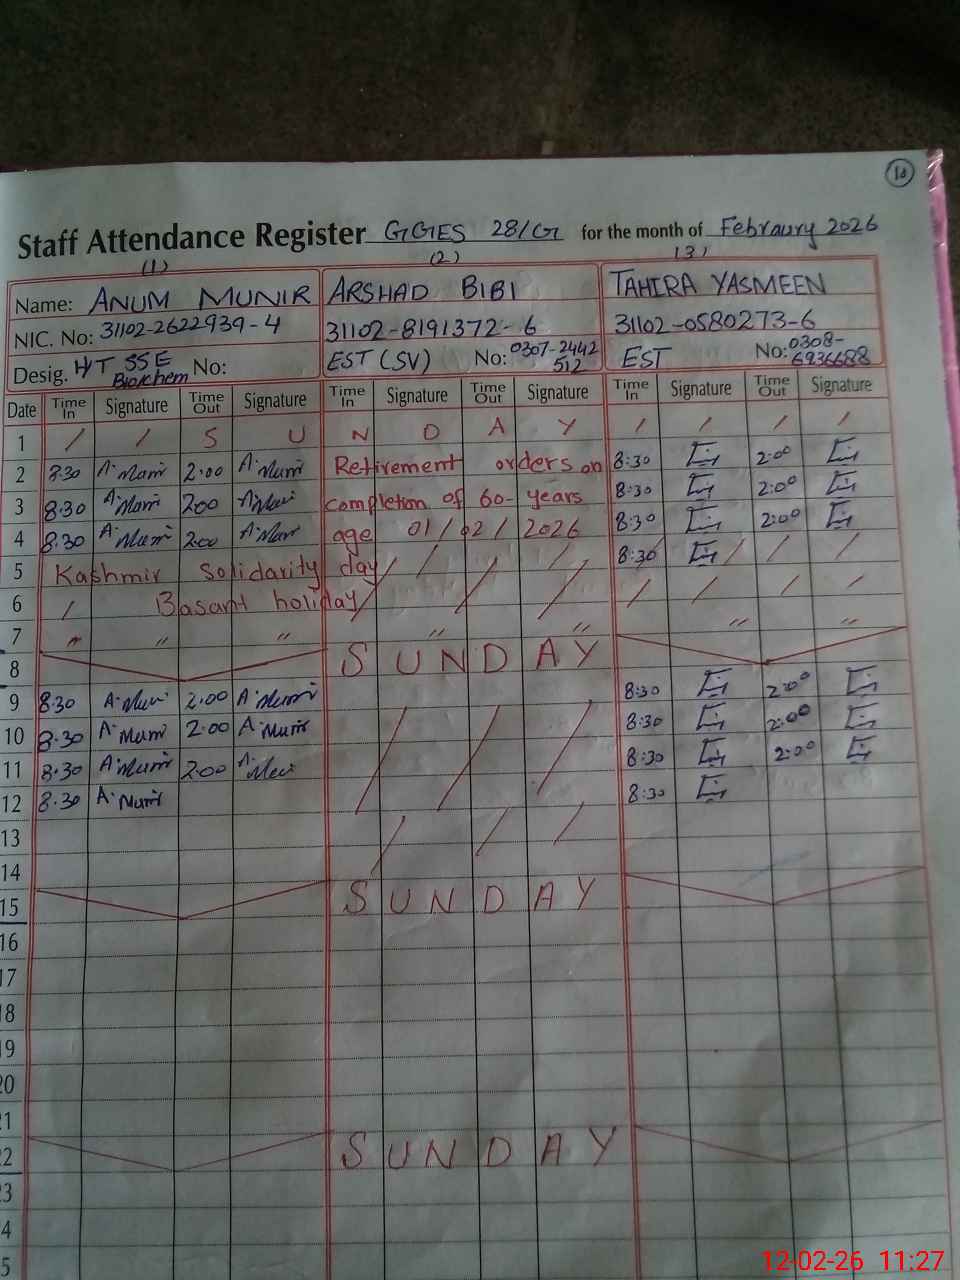 10
Staff Attendance Register GGES 28/G for the month of Febraury 2026
(1) (2) (3)
Name: ANUM MUNIR ARSHAD BIBI TAHIRA YASMEEN
NIC. No: 31102-2622939-4 31102-8191372-6 31102-0580273-6
Desig. H/T SSE Bio/chem No: EST (SV) No: 0307-2442 512 EST No: 0308-6936688
Date Time In Signature Time Out Signature Time In Signature Time Out Signature Time In Signature Time Out Signature
1 / / S U N D A Y / / / /
2 8:30 A.Munir 2:00 A.Munir Retirement orders on 8:30 2:00
3 8:30 A.Munir 2:00 A.Munir completion of 60- years 8:30 2:00
4 8:30 A.Munir 2:00 A.Munir age 01/02/2026 8:30 2:00
5 Kashmir Solidarity day / / / 8:30 / / /
6 / Basant holiday / / / / / /
7 " " " " " " "
8 SUNDAY
9 8:30 A.Munir 2:00 A.Munir 8:30 2:00
10 8:30 A.Munir 2:00 A.Munir 8:30 2:00
11 8:30 A.Munir 2:00 A.Munir 8:30 2:00
12 8:30 A.Munir 8:30
13
14
15 SUNDAY
16
17
18
19
20
21
22 SUNDAY
23
4
5
12-02-26 11:27